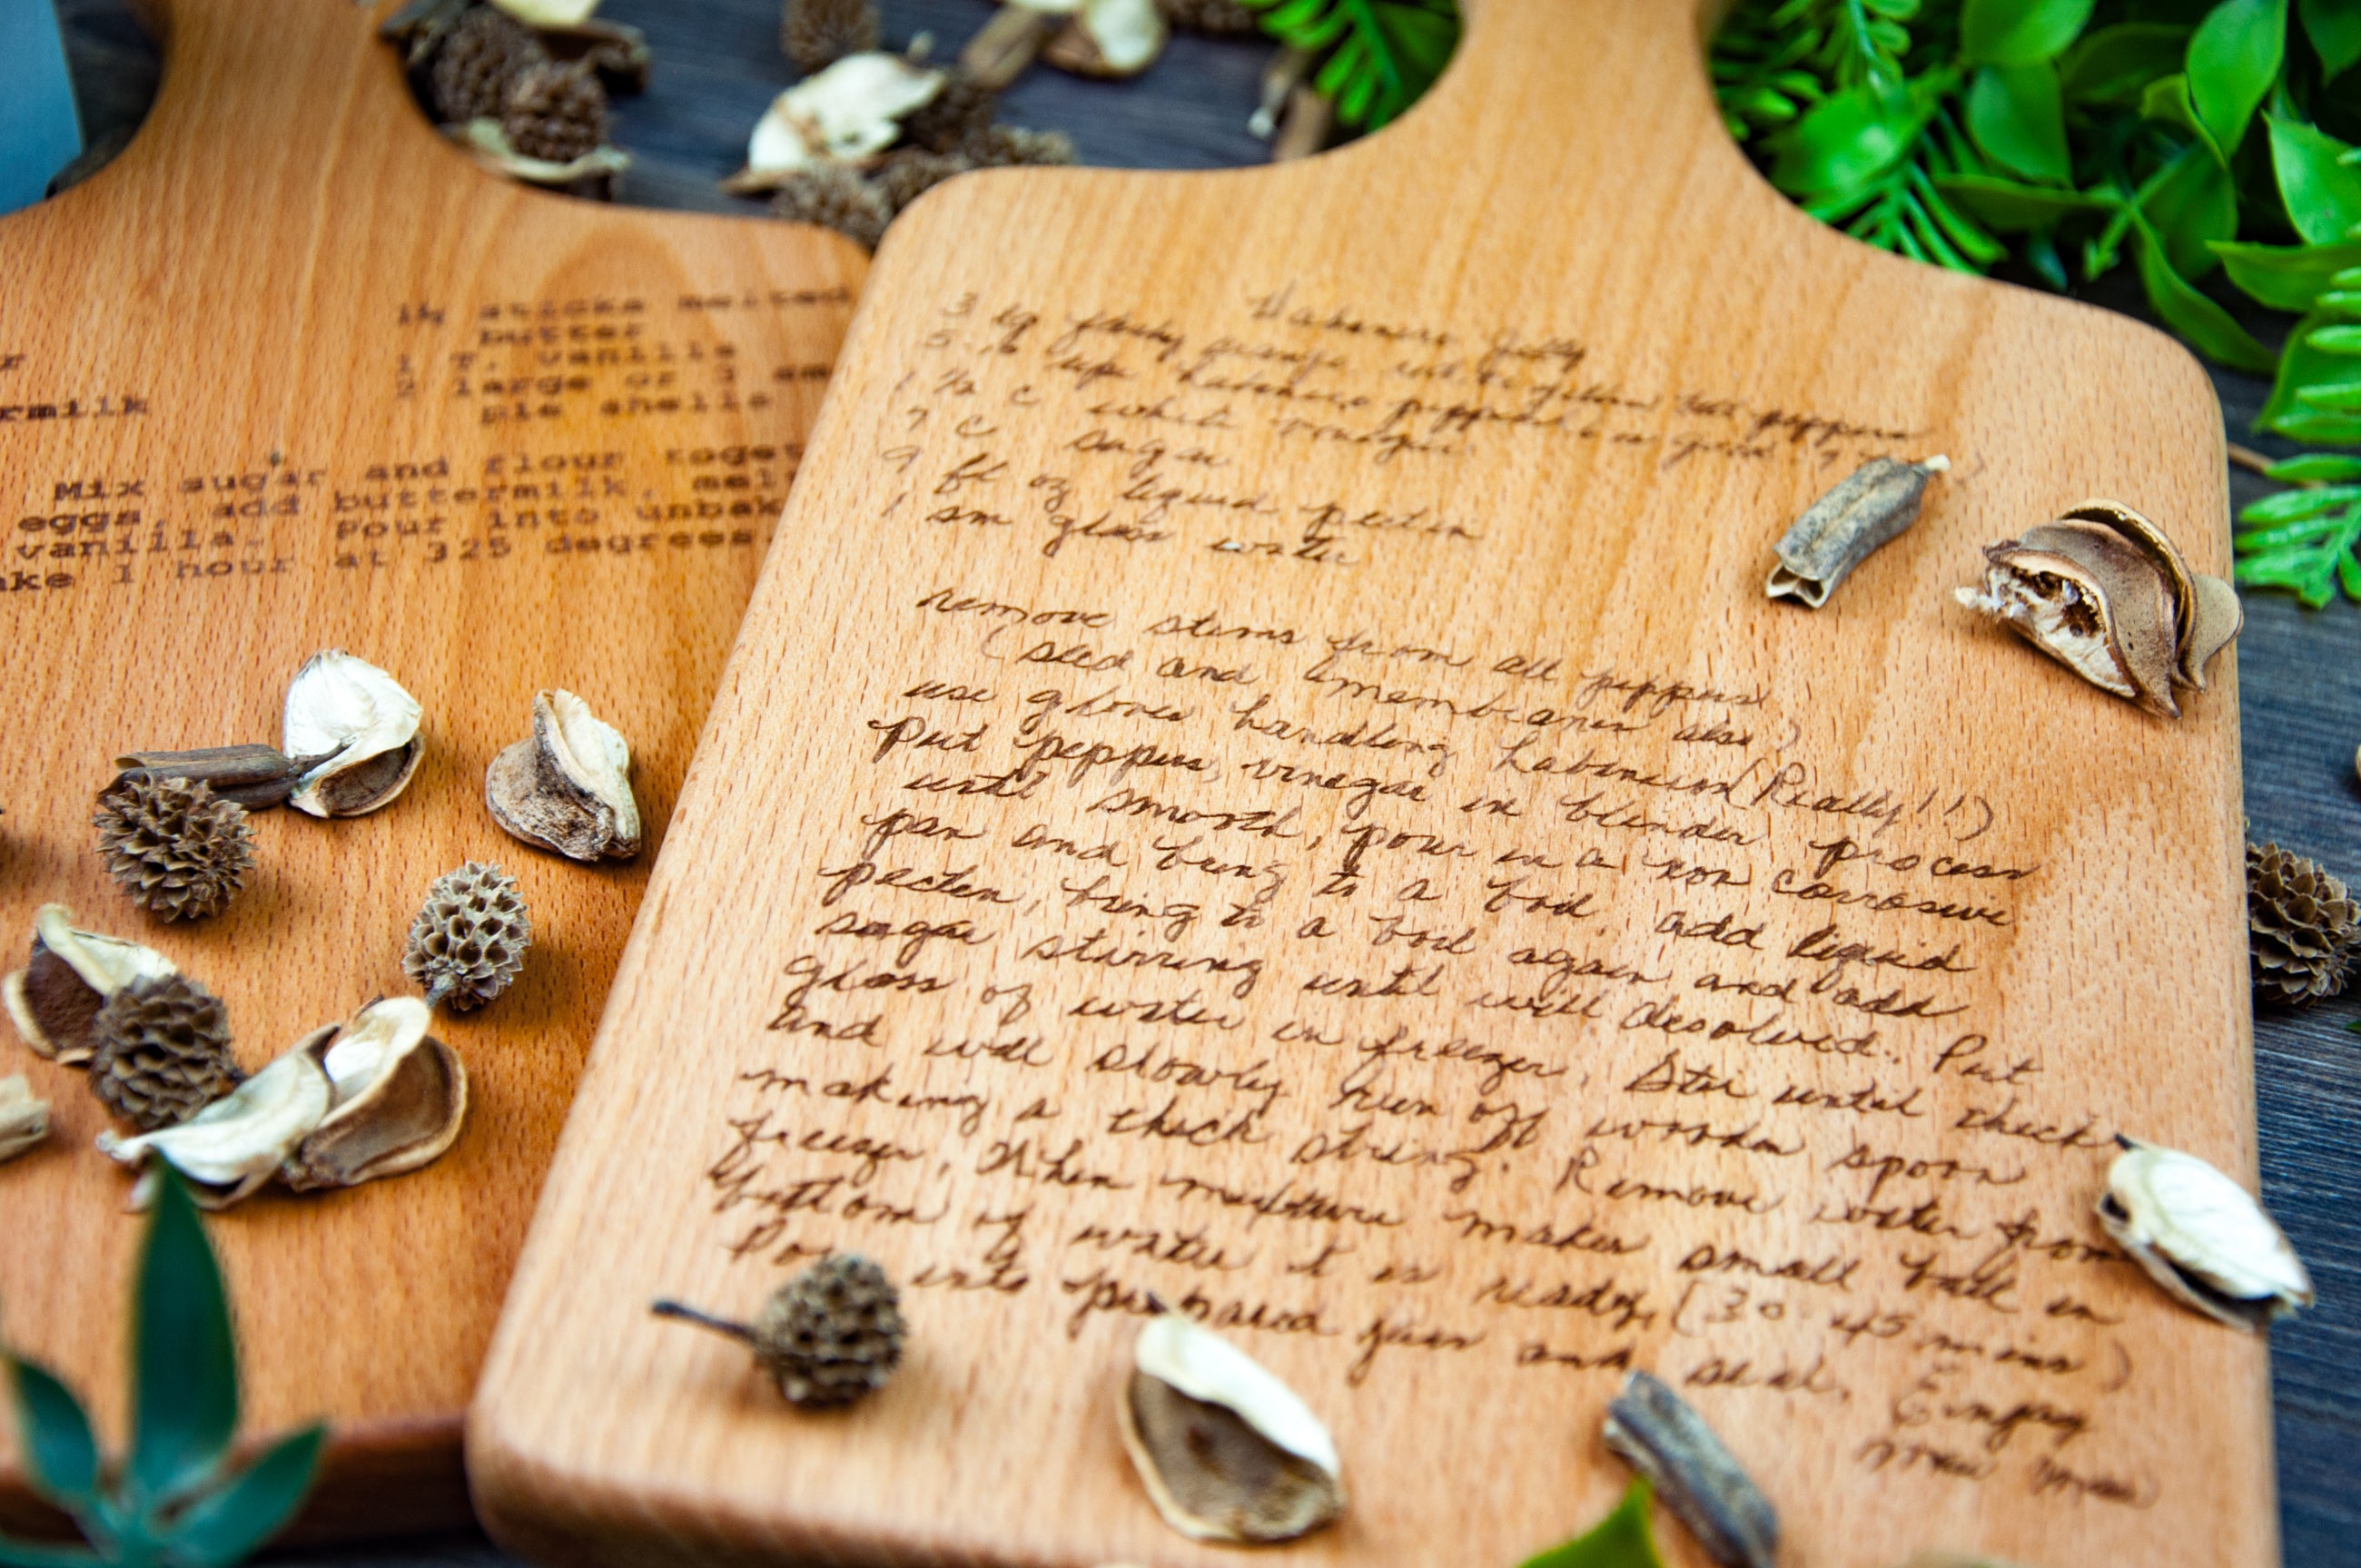 1¼ sticks melted
butter
1 T. vanilla
2 large or 3
pie shells
Mix sugar and flour
eggs, add buttermilk,
vanilla. Pour into
1 hour at 325 degrees
Habanero Jelly
3 lg orange hot peppers
habanero peppers
1 ½ c white vinegar
7 c sugar
9 fl oz liquid pectin
1 sm glass water
remove stems from all peppers
(seed and membranes also)
use gloves handling (Really!!)
Put peppers, vinegar in blender process
until smooth, pour in a non corrosive
pan and bring to a boil. add liquid
pecten, bring to a boil again and add
sugar stirring until well desolved. Put
glass of water in freezer. Stir until thick
and will slowly run off wooden spoon
making a thick string. Remove water from
freezer. When mixture makes small ball in
bottom of water it is ready. (30-45 mins)
into prepared jars and seal. Enjoy